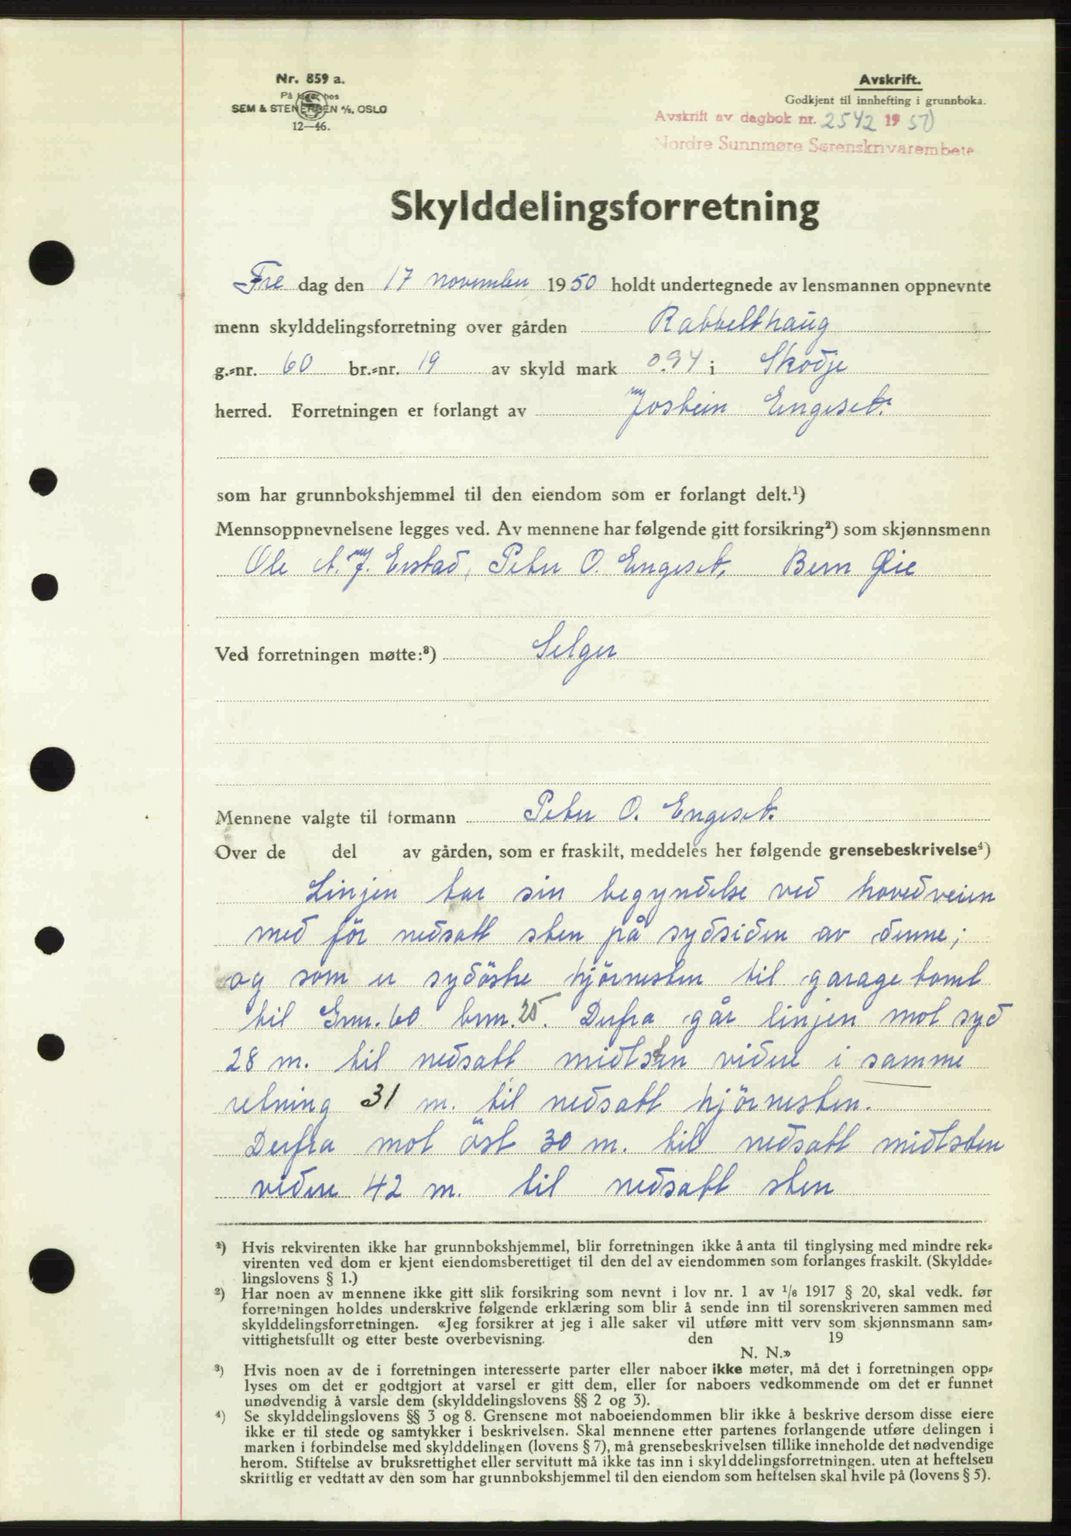 Nr. 859 a.
På lager hos
SEM & STENERSEN A/S, OSLO
12—46.
Avskrift.
Godkjent til innhefting i grunnboka.
Avskrift av dagbok nr. 2542 1950
Nordre Sunnmøre Sørenskrivarembete
Skylddelingsforretning
Fre dag den 17 november 1950 holdt undertegnede av lensmannen oppnevnte
menn skylddelingsforretning over gården Rabbelthaug
g.-nr. 60 br.-nr. 19 av skyld mark 0.94 i Skodje
herred. Forretningen er forlangt av Jostein Engeset.
som har grunnbokshjemmel til den eiendom som er forlangt delt.¹)
Mennsoppnevnelsene legges ved. Av mennene har følgende gitt forsikring²) som skjønnsmenn
Ole A. J. Erstad, Peter O. Engeset, Bern Øie
Ved forretningen møtte:³) Selger
Mennene valgte til formann Peter O. Engeset.
Over de del av gården, som er fraskilt, meddeles her følgende grensebeskrivelse⁴)
Linjen tar sin begyndelse ved hovedveien
med för nedsatt sten på sydsiden av denne;
og som er sydöstre hjörnesten til garage tomt
til Gnr. 60 brnr. 25. Derfra går linjen mot syd
28 m. til nedsatt midtsten videre i samme
retning 31 m. til nedsatt hjörnesten.
Derfra mot öst 30 m. til nedsatt midtsten
videre 42 m. til nedsatt sten
¹) Hvis rekvirenten ikke har grunnbokshjemmel, blir forretningen ikke å anta til tinglysing med mindre rek-
virenten ved dom er kjent eiendomsberettiget til den del av eiendommen som forlanges fraskilt. (Skyldde-
lingslovens § 1.)
²) Har noen av mennene ikke gitt slik forsikring som nevnt i lov nr. 1 av 1/6 1917 § 20, skal vedk. før
forretningen holdes underskrive følgende erklæring som blir å sende inn til sorenskriveren sammen med
skylddelingsforretningen. «Jeg forsikrer at jeg i alle saker vil utføre mitt verv som skjønnsmann sam-
vittighetsfullt og etter beste overbevisning. den 19
N. N.»
³) Hvis noen av de i forretningen interesserte parter eller naboer ikke møter, må det i forretningen opp-
lyses om det er godtgjort at varsel er gitt dem, eller for naboers vedkommende om det er funnet
unødvendig å varsle dem (skylddelingslovens §§ 2 og 3).
⁴) Se skylddelingslovens §§ 3 og 8. Grensene mot naboeiendommen blir ikke å beskrive dersom disse eiere
ikke er til stede og samtykker i beskrivelsen. Skal mennene etter partenes forlangende utføre delingen i
marken i forbindelse med skylddelingen (lovens § 7), må grensebeskrivelsen tillike inneholde det nødvendige
herom. Stiftelse av bruksrettighet eller servitutt må ikke tas inn i skylddelingsforretningen, uten at heftelsen
skriftlig er vedtatt av den som har grunnbokshjemmel til den eiendom som heftelsen skal hvile på (lovens § 5).